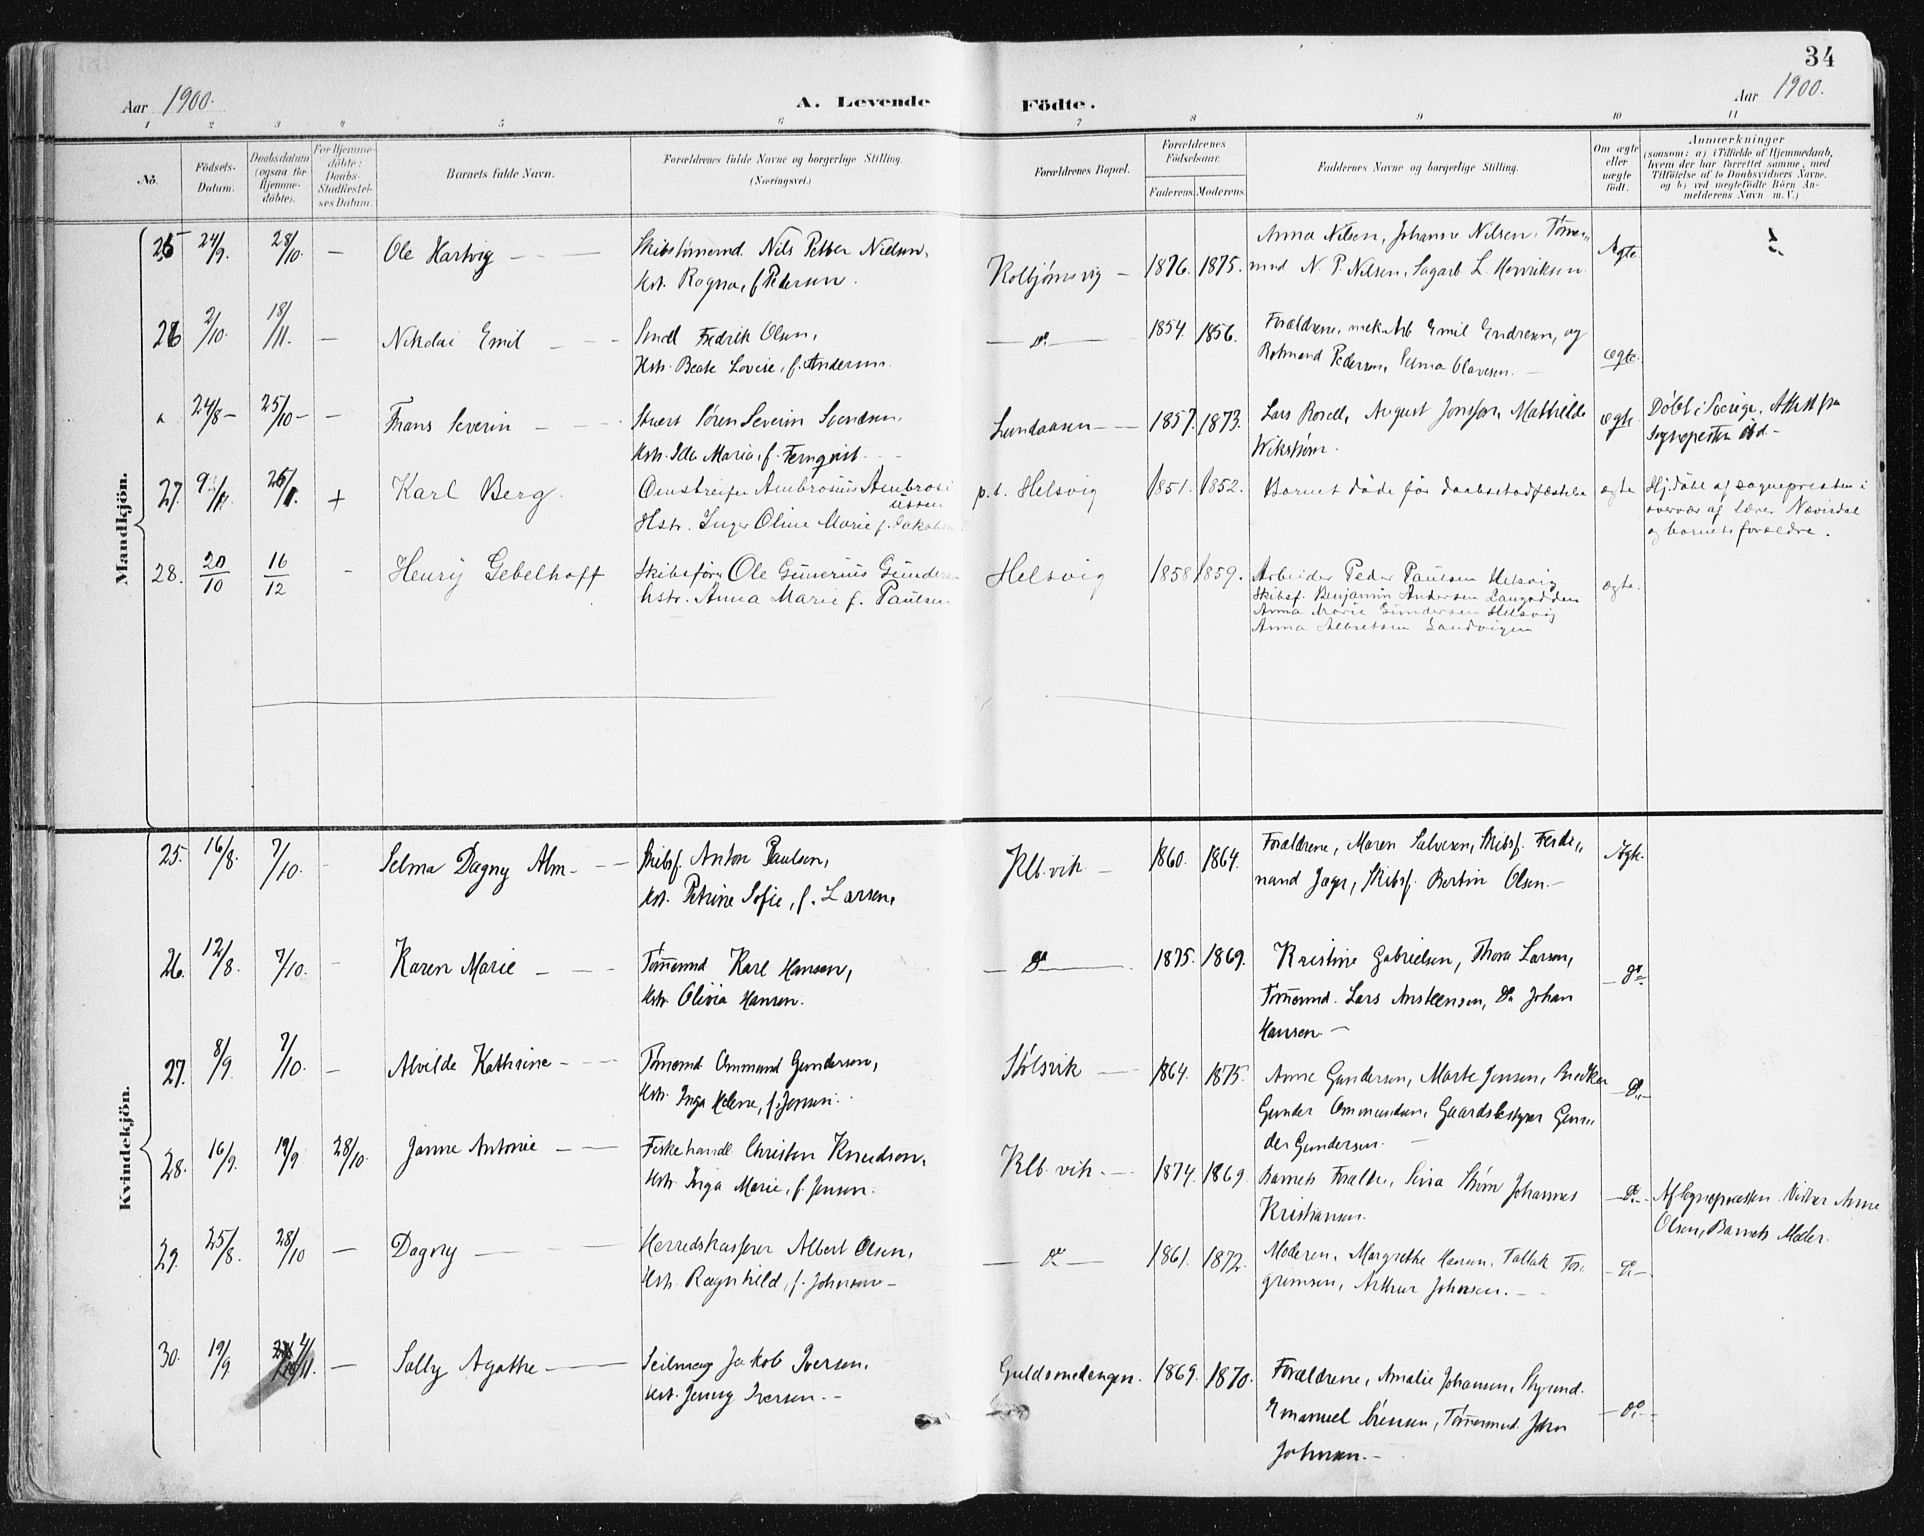 34
Aar 1900.
A. Levende Födte.
Aar 1900.
1 2 3 4 5 6 7 8 9 10 11
No.
Födsels-
Datum.
Daabsdatum
(ogsaa for
Hjemme-
döbte).
For Hjemme-
döbte:
Daabs-
Stadfæstel-
ses Datum.
Barnets fulde Navn.
Forældrenes fulde Navne og borgerlige Stilling.
(Næringsvei.)
Forældrenes Bopæl.
Forældrenes
Födselsaar.
Faderens. Moderens.
Faddernes Navne og borgerlige Stilling.
Om ægte
eller
uægte
födt.
Anmærkninger
(saasom: a) i Tilfælde af Hjemmedaab,
hvem der har forrettet samme, med
Tilföielse af to Daabsvidners Navne,
og b) ved uægtefödte Börn An-
melderens Navn m. V.)
Mandkjön.
25 24/9. 28/10. — Ole Hartvig — Skibstømmermd. Nils Petter Nielsen,
Hst. Ragna, f. Pedersen.
Kolbjørnsvig — 1876. 1875.
Anna Nilsen, Johanne Nilsen, Tømer-
mnd N. P. Nilsen, L. Henriksen
Ægte
26 2/10. 18/11. — Nikolai Emil — Fredrik Olsen,
Hstr. Beate Lovise, f. Andersen.
— Do — 1854. 1856.
Forældrene, mek. Arb Emil Endresen, og
Pedersen, Selma Olavesen. —
ægte.
24/8 — 25/10 — — Frans Severin — Stuert Søren Severin Svendsen,
Hstr. Ida Maria, f. Fernqvist.
Lundaasen — 1857. 1873.
Lars Borell, August Jonsson, Mathilde
Wikstrøm.
ægte
Döbt i Sverige. Attest fra
Sognepresten ibd. —
27. + Karl Berg.
Omstreifer Ambrosius Ambrosi
ussen
Hstr. Inger Oline Marie f. Jakobsen
p.t. Helsvig 1851. 1852.
Barnet døde før daabsstadfæstelse
ægte
Hj.døbt af sognepresten i
overvær af Lærer Nævisdal
og barnets forældre.
28. 20/10 16/12 - Henry Gebelhoff
Skibsfører Ole Gunerius Gundersen
hstr. Anna Marie f. Paulsen
Helsvig 1858 1859.
Arbeider Peder Paulsen Helsvig
Skibsf. Benjamin Andersen Langodden
Anna Marie Gundersen Helsvig
Anna Albretsen Sandvigen
ægte.
Kvindekjön.
25. 16/8. 7/10. - Selma Dagny Alm — Skibsf. Anton Paulsen,
Hst. Petrine Sofie, f. Larsen,
Klb.vik — 1860. 1864.
Forældrene, Maren Salvesen, Skibsf. Ferdi-
nand Jager, Skibsf. Bertin Olsen. —
Ægte.
26. 12/8. 7/10. - Karen Marie — Tømermd Karl Hansen,
Hstr. Olivia Hansen.
— Do — 1875. 1869.
Kristine Gabrielsen, Thora Larsen,
Tømermnd. Lars Ansteensen, Do Johan
Hansen. —
— do —
27. 8/9. 7/10. — Alvilde Kathrine — Tømermd Ommund Gundersen,
Hstr. Inga Helene, f. Jensen.
Stølsvik — 1864. 1875.
Anne Gundersen, Marte Jensen,
Gunder Ommundsen, Gaardsbestyrer Gun-
der Gundersen. —
— Do —
28. 16/9. 19/9 28/10. Janne Antonie — Fiskehandl. Christen Knudsen,
Hstr. Inga Marie, f. Jensen.
Klb.vik. — 1874. 1869.
Barnets Forældre, Sina Strøm Johannes
Kristiansen.
— Do —
Af Sognepresten. Vidner Anne
Olsen, Barnets Moder.
29. 25/8. 28/10 — Dagny — Herredskasserer Albert Olsen,
Hstr. Ragnhild, f. Johnsen —
— Do — 1861. 1872.
Moderen, Margrethe Hansen, Tallak Tor-
grimsen, Arthur Johnsen. —
— Do —
30. 19/9. 4/11. — Sally Agathe — Seilmag Jakob Iversen,
Hst. Jenny Iversen. —
Guldsmedengen. 1869. 1870.
Forældrene, Amalie Johansen, Styrmd.
Emanuel Sørensen, Tømmermnd. John
Johnsen. —
— do —